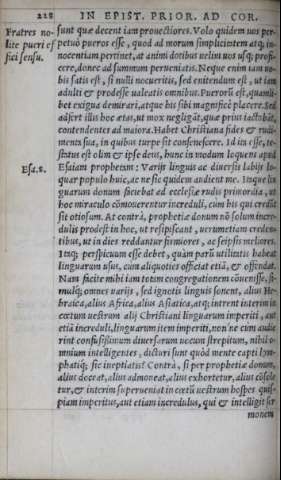 228 IN EPIST. PRIOR. AD COR.
Fratres no-
lite pueri ef
fici sensu.
Esa.8.
sunt quæ decent iam prouectiores. Volo quidem uos per-
petuò pueros esse, quod ad morum simplicitatem atq; in-
nocentiam pertinet, at animi dotibus uelim uos usq; profi-
cere, donec ad summum perueniatis. Neque enim iam uo-
bis satis est, si nulli nocueritis, sed enitendum est, ut iam
adulti & prodesse ualeatis omnibus. Puerorũ est, quamli-
bet exigua demirari, atque his sibi magnificè placere. Sed
adsert illis hoc ætas, ut mox negligãt, quæ prius iactabãt,
contendentes ad maiora. Habet Christiana fides & rudi-
menta sua, in quibus turpe sit consenescere. Id ita esse, te-
status est olim & ipse deus, hunc in modum loquens apud
Esaiam prophetam: Varijs linguis ac diuersis labijs lo-
quar populo huic, ac ne sic quidem audient me. Itaque lin
guarum donum faciebat ad ecclesiæ rudis primordia, ut
hoc miraculo cõmouerentur increduli, cum his qui credũt
sit otiosum. At contrà, prophetiæ donum nõ solum incre-
dulis prodest in hoc, ut resipiscant, uerumetiam creden-
tibus, ut in dies reddantur firmiores, ac seipsis meliores.
Itaq; perspicuum esse debet, quàm parũ utilitatis habeat
linguarum usus, cum aliquoties officiat etiã, & offendat.
Nam facite mihi iam totam congregationem cõuenisse, si-
mulq; omnes uarijs, sed ignotis linguis sonent, alius He-
braica, alius Africa, alius Asiatica, atq; intrent interim in
cœtum uestrum alij Christiani linguarum imperiti, aut
etiã increduli, linguarum item imperiti, non ne cùm audie
rint confusissimum diuersarum uocum strepitum, nihil o-
mnium intelligentes, dicturi sunt quòd mente capti lym-
phatiq; sic ineptiatis? Contrà, si per prophetiæ donum,
alius doceat, alius admoneat, alius exhortetur, alius cõsole
tur, & interim superueniat in cœtũ uestrum hospes quis-
piam imperitus, aut etiam incredulus, qui & intelligit ser
monem